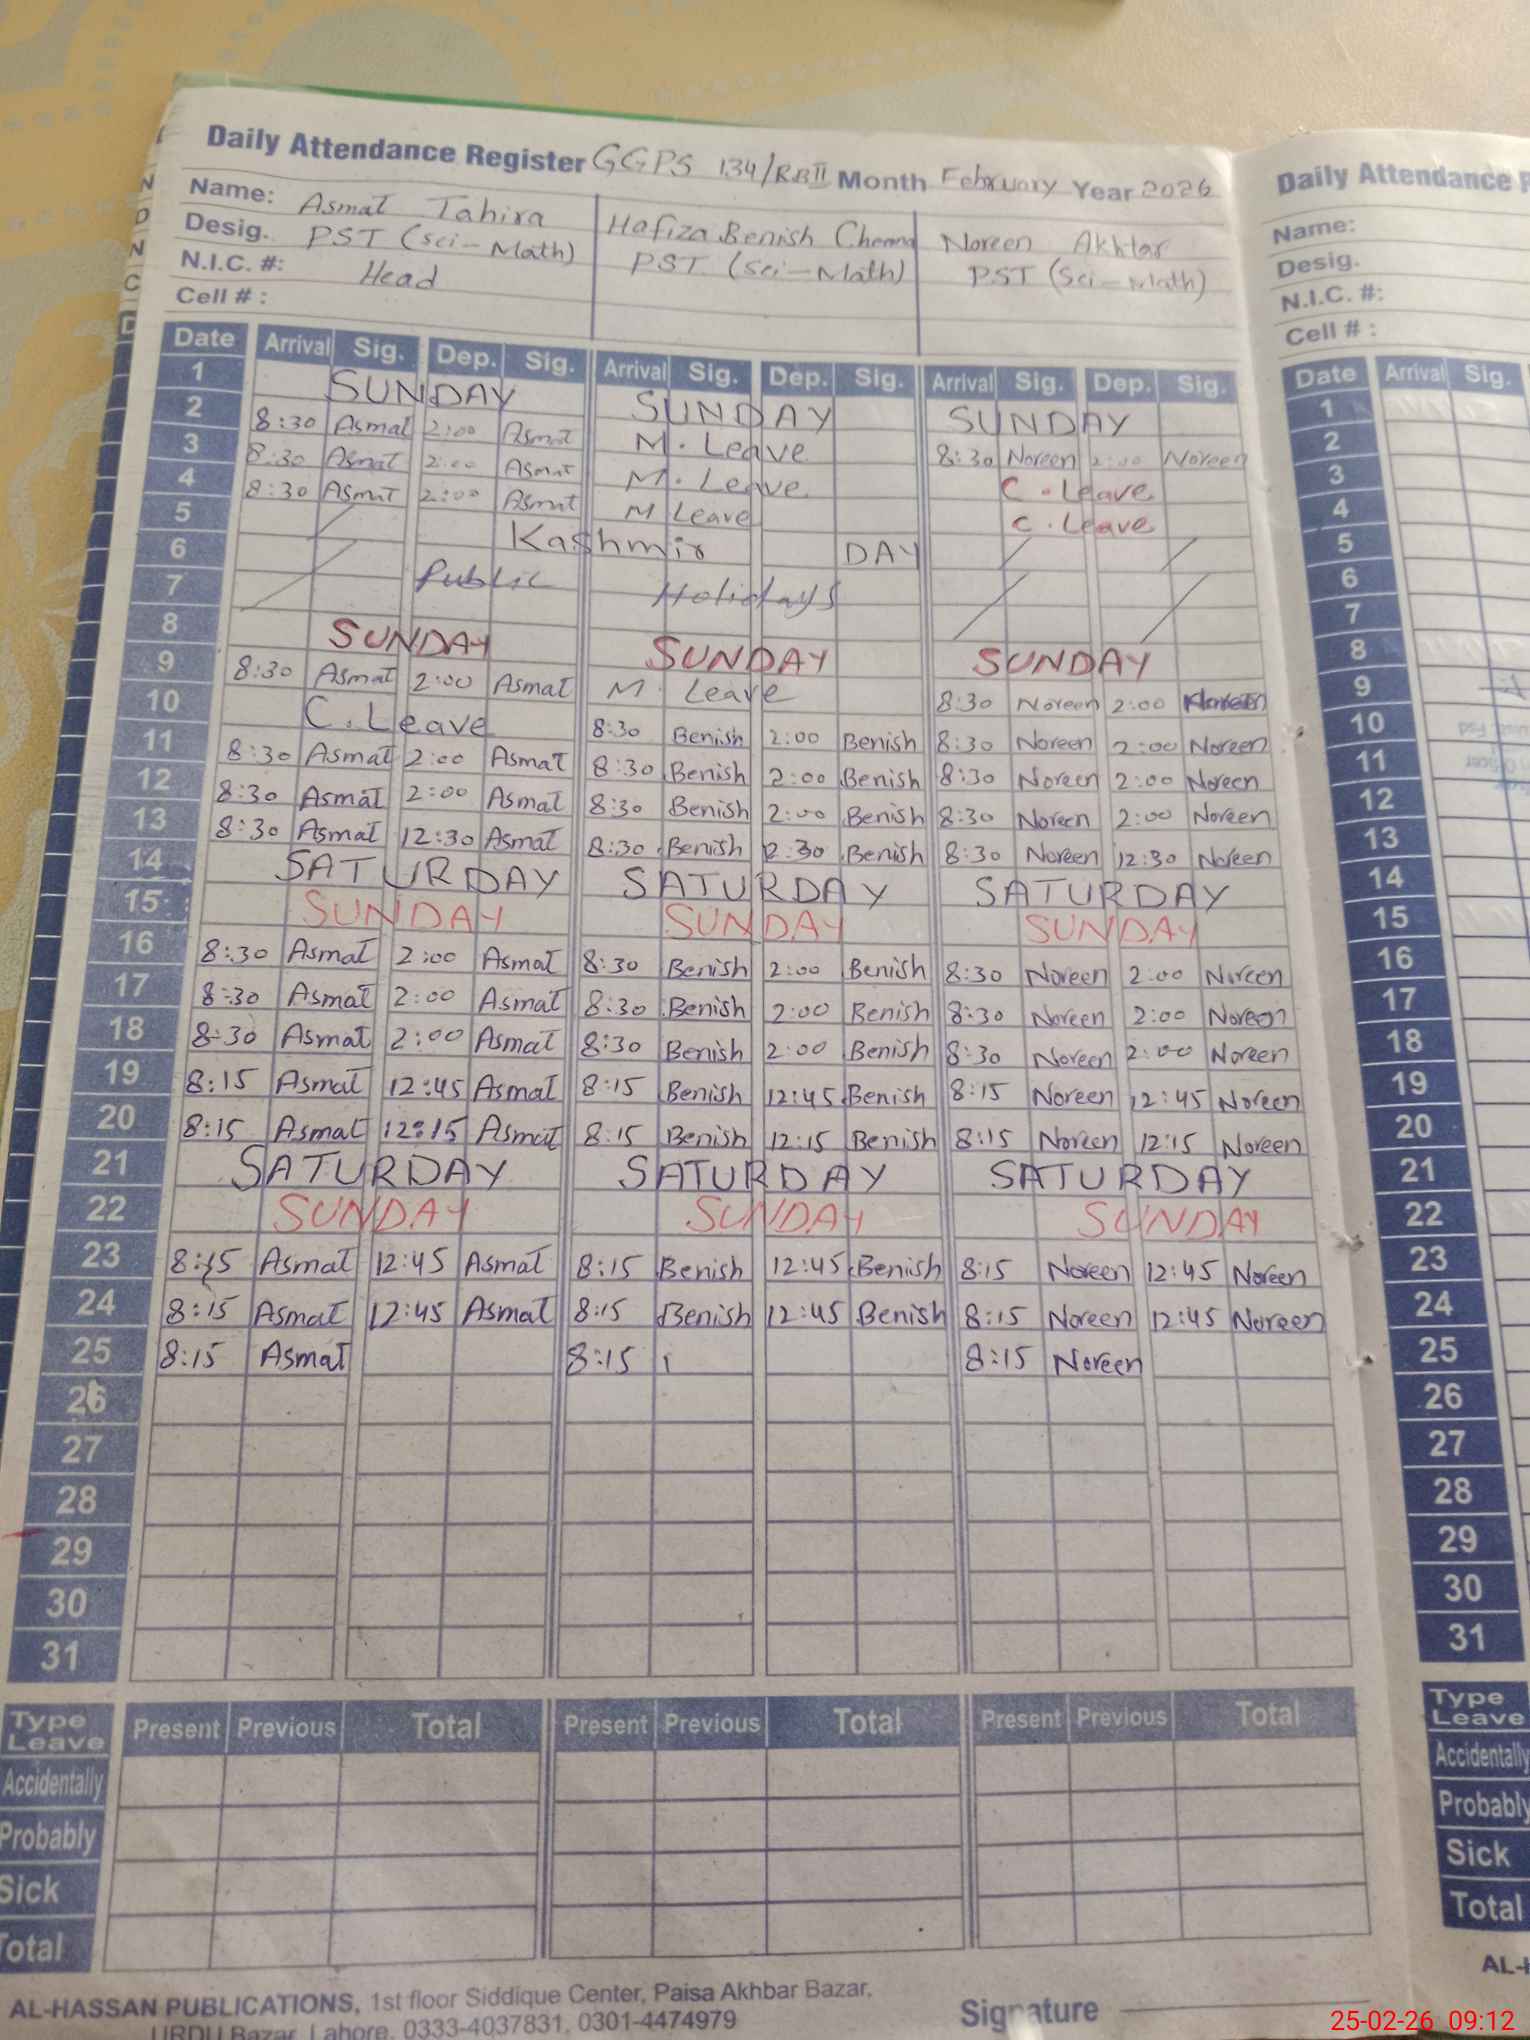 Daily Attendance Register GGPS 134/RBII Month February Year 2026
Name: Asmat Tahira Hafiza Benish Noreen Akhtar
Desig. PST (Sci-Math) PST (Sci-Math) PST (Sci-Math)
N.I.C. #: Head
Cell # :
Date Arrival Sig. Dep. Sig. Arrival Sig. Dep. Sig. Arrival Sig. Dep. Sig.
1 SUNDAY SUNDAY SUNDAY
2 8:30 Asmat 2:00 Asmat M. Leave 8:30 Noreen 2:00 Noreen
3 8:30 Asmat 2:00 Asmat M. Leave C. Leave
4 8:30 Asmat 2:00 Asmat M Leave C. Leave
5 Kashmir DAY
6 Public Holidays
7
8 SUNDAY SUNDAY SUNDAY
9 8:30 Asmat 2:00 Asmat M. Leave 8:30 Noreen 2:00 Noreen
10 C. Leave 8:30 Benish 2:00 Benish 8:30 Noreen 2:00 Noreen
11 8:30 Asmat 2:00 Asmat 8:30 Benish 2:00 Benish 8:30 Noreen 2:00 Noreen
12 8:30 Asmat 2:00 Asmat 8:30 Benish 2:00 Benish 8:30 Noreen 2:00 Noreen
13 8:30 Asmat 12:30 Asmat 8:30 Benish 12:30 Benish 8:30 Noreen 12:30 Noreen
14 SATURDAY SATURDAY SATURDAY
15 SUNDAY SUNDAY SUNDAY
16 8:30 Asmat 2:00 Asmat 8:30 Benish 2:00 Benish 8:30 Noreen 2:00 Noreen
17 8:30 Asmat 2:00 Asmat 8:30 Benish 2:00 Benish 8:30 Noreen 2:00 Noreen
18 8:30 Asmat 2:00 Asmat 8:30 Benish 2:00 Benish 8:30 Noreen 2:00 Noreen
19 8:15 Asmat 12:45 Asmat 8:15 Benish 12:45 Benish 8:15 Noreen 12:45 Noreen
20 8:15 Asmat 12:15 Asmat 8:15 Benish 12:15 Benish 8:15 Noreen 12:15 Noreen
21 SATURDAY SATURDAY SATURDAY
22 SUNDAY SUNDAY SUNDAY
23 8:15 Asmat 12:45 Asmat 8:15 Benish 12:45 Benish 8:15 Noreen 12:45 Noreen
24 8:15 Asmat 12:45 Asmat 8:15 Benish 12:45 Benish 8:15 Noreen 12:45 Noreen
25 8:15 Asmat 8:15 8:15 Noreen
26
27
28
29
30
31
Type Leave Present Previous Total Present Previous Total Present Previous Total
Accidentally
Probably
Sick
Total
AL-HASSAN PUBLICATIONS, 1st floor Siddique Center, Paisa Akhbar Bazar,
URDU Bazar, Lahore, 0333-4037831, 0301-4474979
Signature
Daily Attendance
Name:
Desig.
N.I.C. #:
Cell # :
Date Arrival Sig.
1
2
3
4
5
6
7
8
9
10
11
12
13
14
15
16
17
18
19
20
21
22
23
24
25
26
27
28
29
30
31
Type Leave
Accidentally
Probably
Sick
Total
25-02-26 09:12